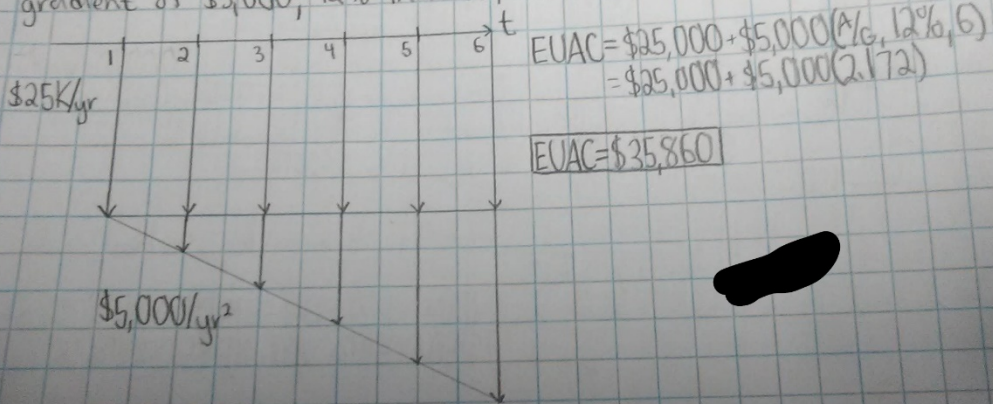 gradient of $5,000,
t
1 2 3 4 5 6
$25K/yr
$5,000/yr²
EUAC=$25,000+$5,000(A/G,12%,6)
=$25,000+$5,000(2.172)
EUAC=$35,860